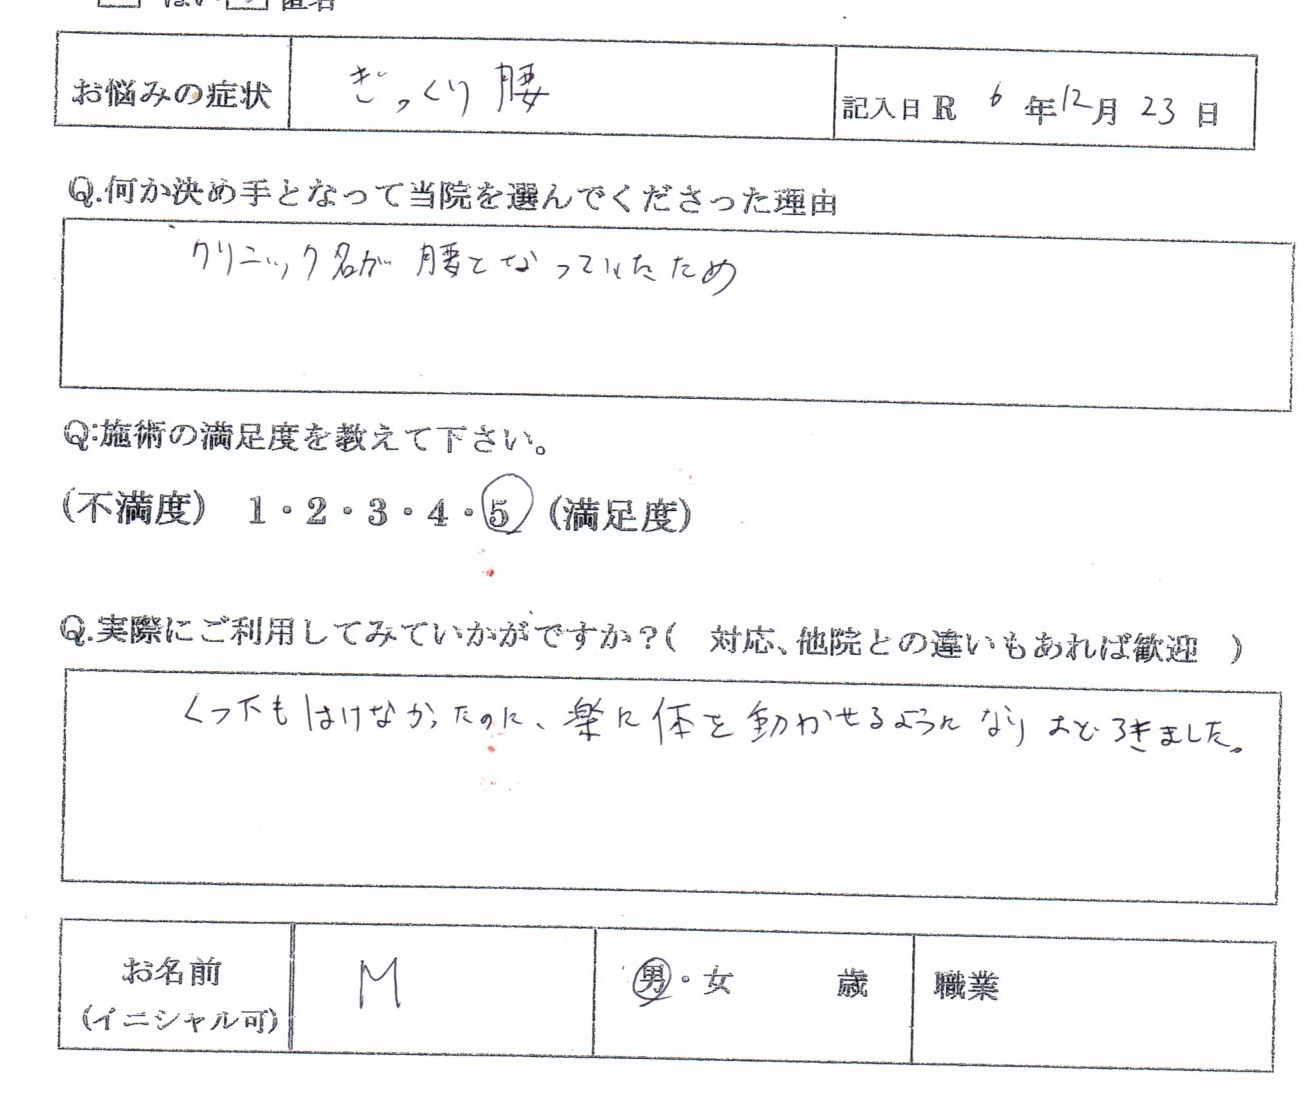 はい 匿名
お悩みの症状 ぎっくり腰 記入日 R 6 年 12 月 23 日
Q.何か決め手となって当院を選んでくださった理由
クリニック名が腰となっていたため
Q:施術の満足度を教えて下さい。
(不満度) 1・2・3・4・5 (満足度)
Q.実際にご利用してみていかがですか?( 対応、他院との違いもあれば歓迎 )
くつ下もはけなかったのに、楽に体を動かせるようになりおどろきました。
お名前 M 男・女 歳 職業
(イニシャル可)